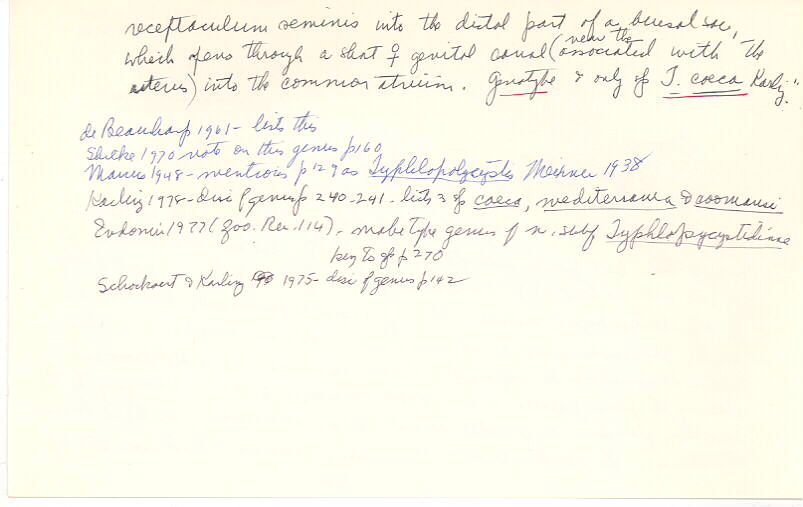 receptaculum seminis into the distal part of a bursal sac,
which opens through a short ♀ genital canal (near the associated with the
uterus) into the common atrium. Genotype & only sp T. coeca Karling."
de Beauchamp 1961 - lists this
1970 note on this genus p160
Marcus 1948 - mentions p129 as Typhlopolycystis Meixner 1938
Karling 1978 - disc of genus p 240-241 - lists 3 sp coeca, mediterranea &
Evdonin 1977 (Zoo. Rec. 114) - makes type genus of n. subf
key to sp p 270
Schockaert & Karling 1975 - disc of genus p142